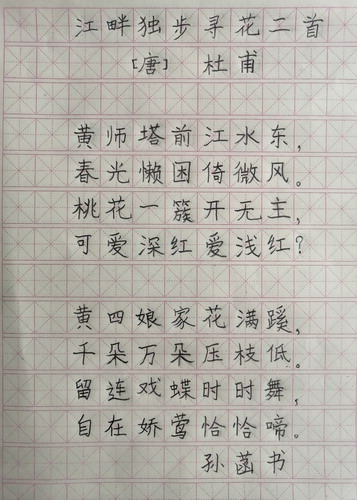 江畔独步寻花二首
[唐] 杜甫
黄师塔前江水东，
春光懒困倚微风。
桃花一簇开无主，
可爱深红爱浅红？
黄四娘家花满蹊，
千朵万朵压枝低。
留连戏蝶时时舞，
自在娇莺恰恰啼。
孙菡书